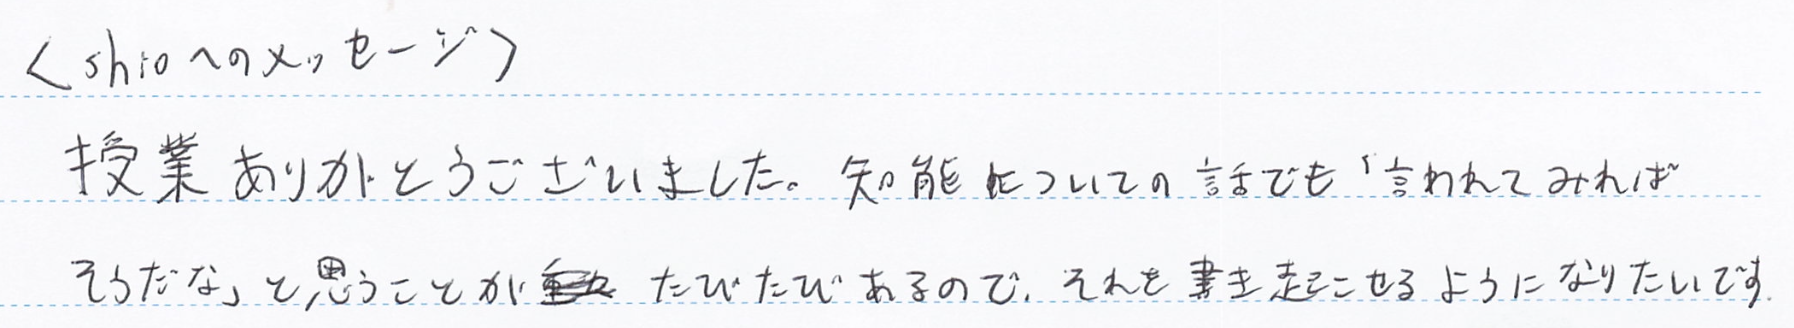 〈shioへのメッセージ〉
授業ありがとうございました。知能についての話でも「言われてみれば
そうだな」と思うことがたびたびあるので、それを書き起こせるようになりたいです.